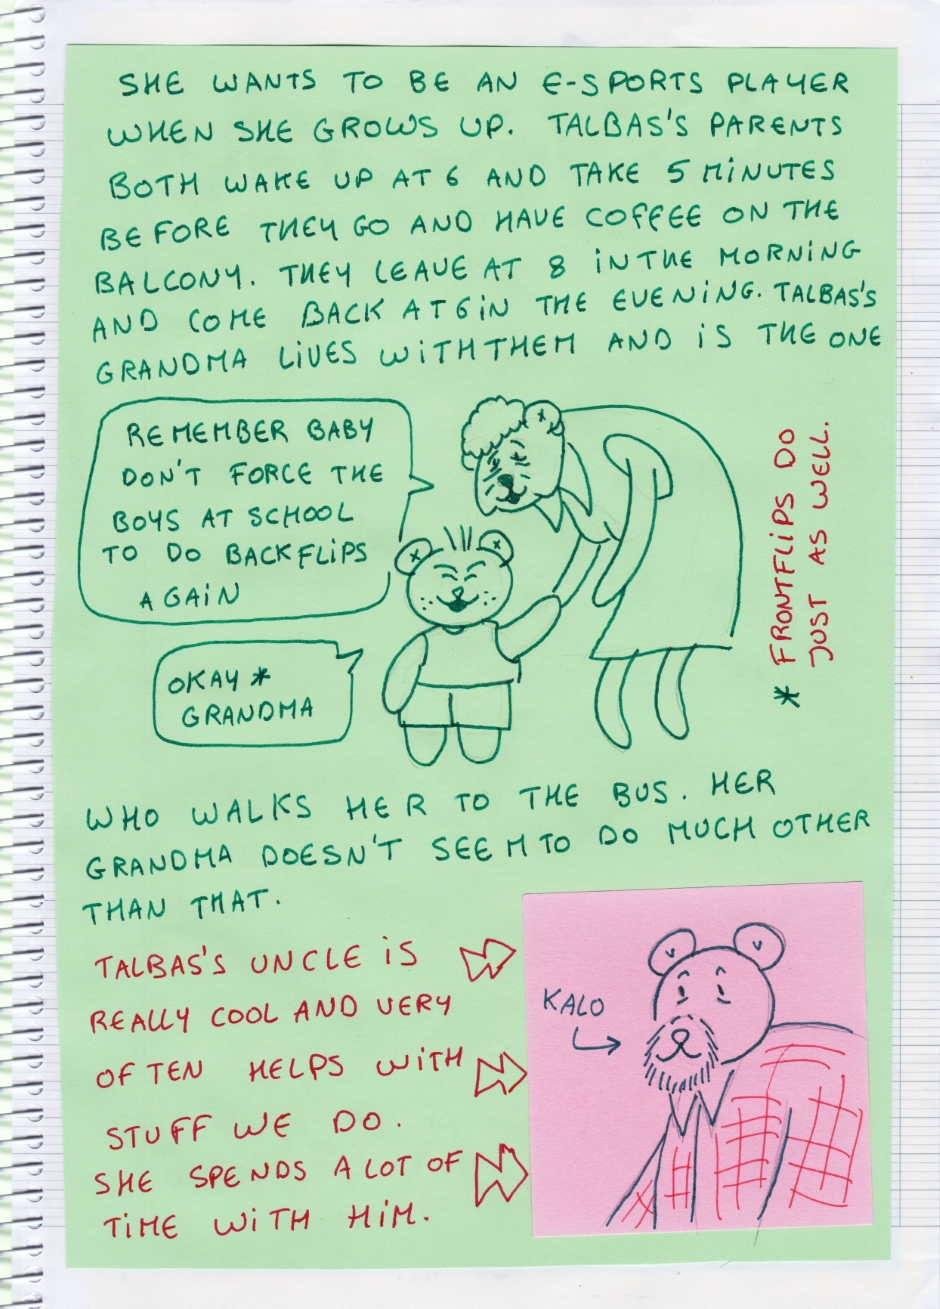 SHE WANTS TO BE AN E-SPORTS PLAYER
WHEN SHE GROWS UP. TALBAS'S PARENTS
BOTH WAKE UP AT 6 AND TAKE 5 MINUTES
BEFORE THEY GO AND HAVE COFFEE ON THE
BALCONY. THEY LEAVE AT 8 IN THE MORNING
AND COME BACK AT 6 IN THE EVENING. TALBAS'S
GRANDMA LIVES WITH THEM AND IS THE ONE
REMEMBER BABY
DON'T FORCE THE
BOYS AT SCHOOL
TO DO BACKFLIPS
AGAIN
OKAY *
GRANDMA
* FRONTFLIPS DO
JUST AS WELL.
WHO WALKS HER TO THE BUS. HER
GRANDMA DOESN'T SEEM TO DO MUCH OTHER
THAN THAT.
TALBAS'S UNCLE IS
REALLY COOL AND VERY
OFTEN HELPS WITH
STUFF WE DO.
SHE SPENDS A LOT OF
TIME WITH HIM.
KALO